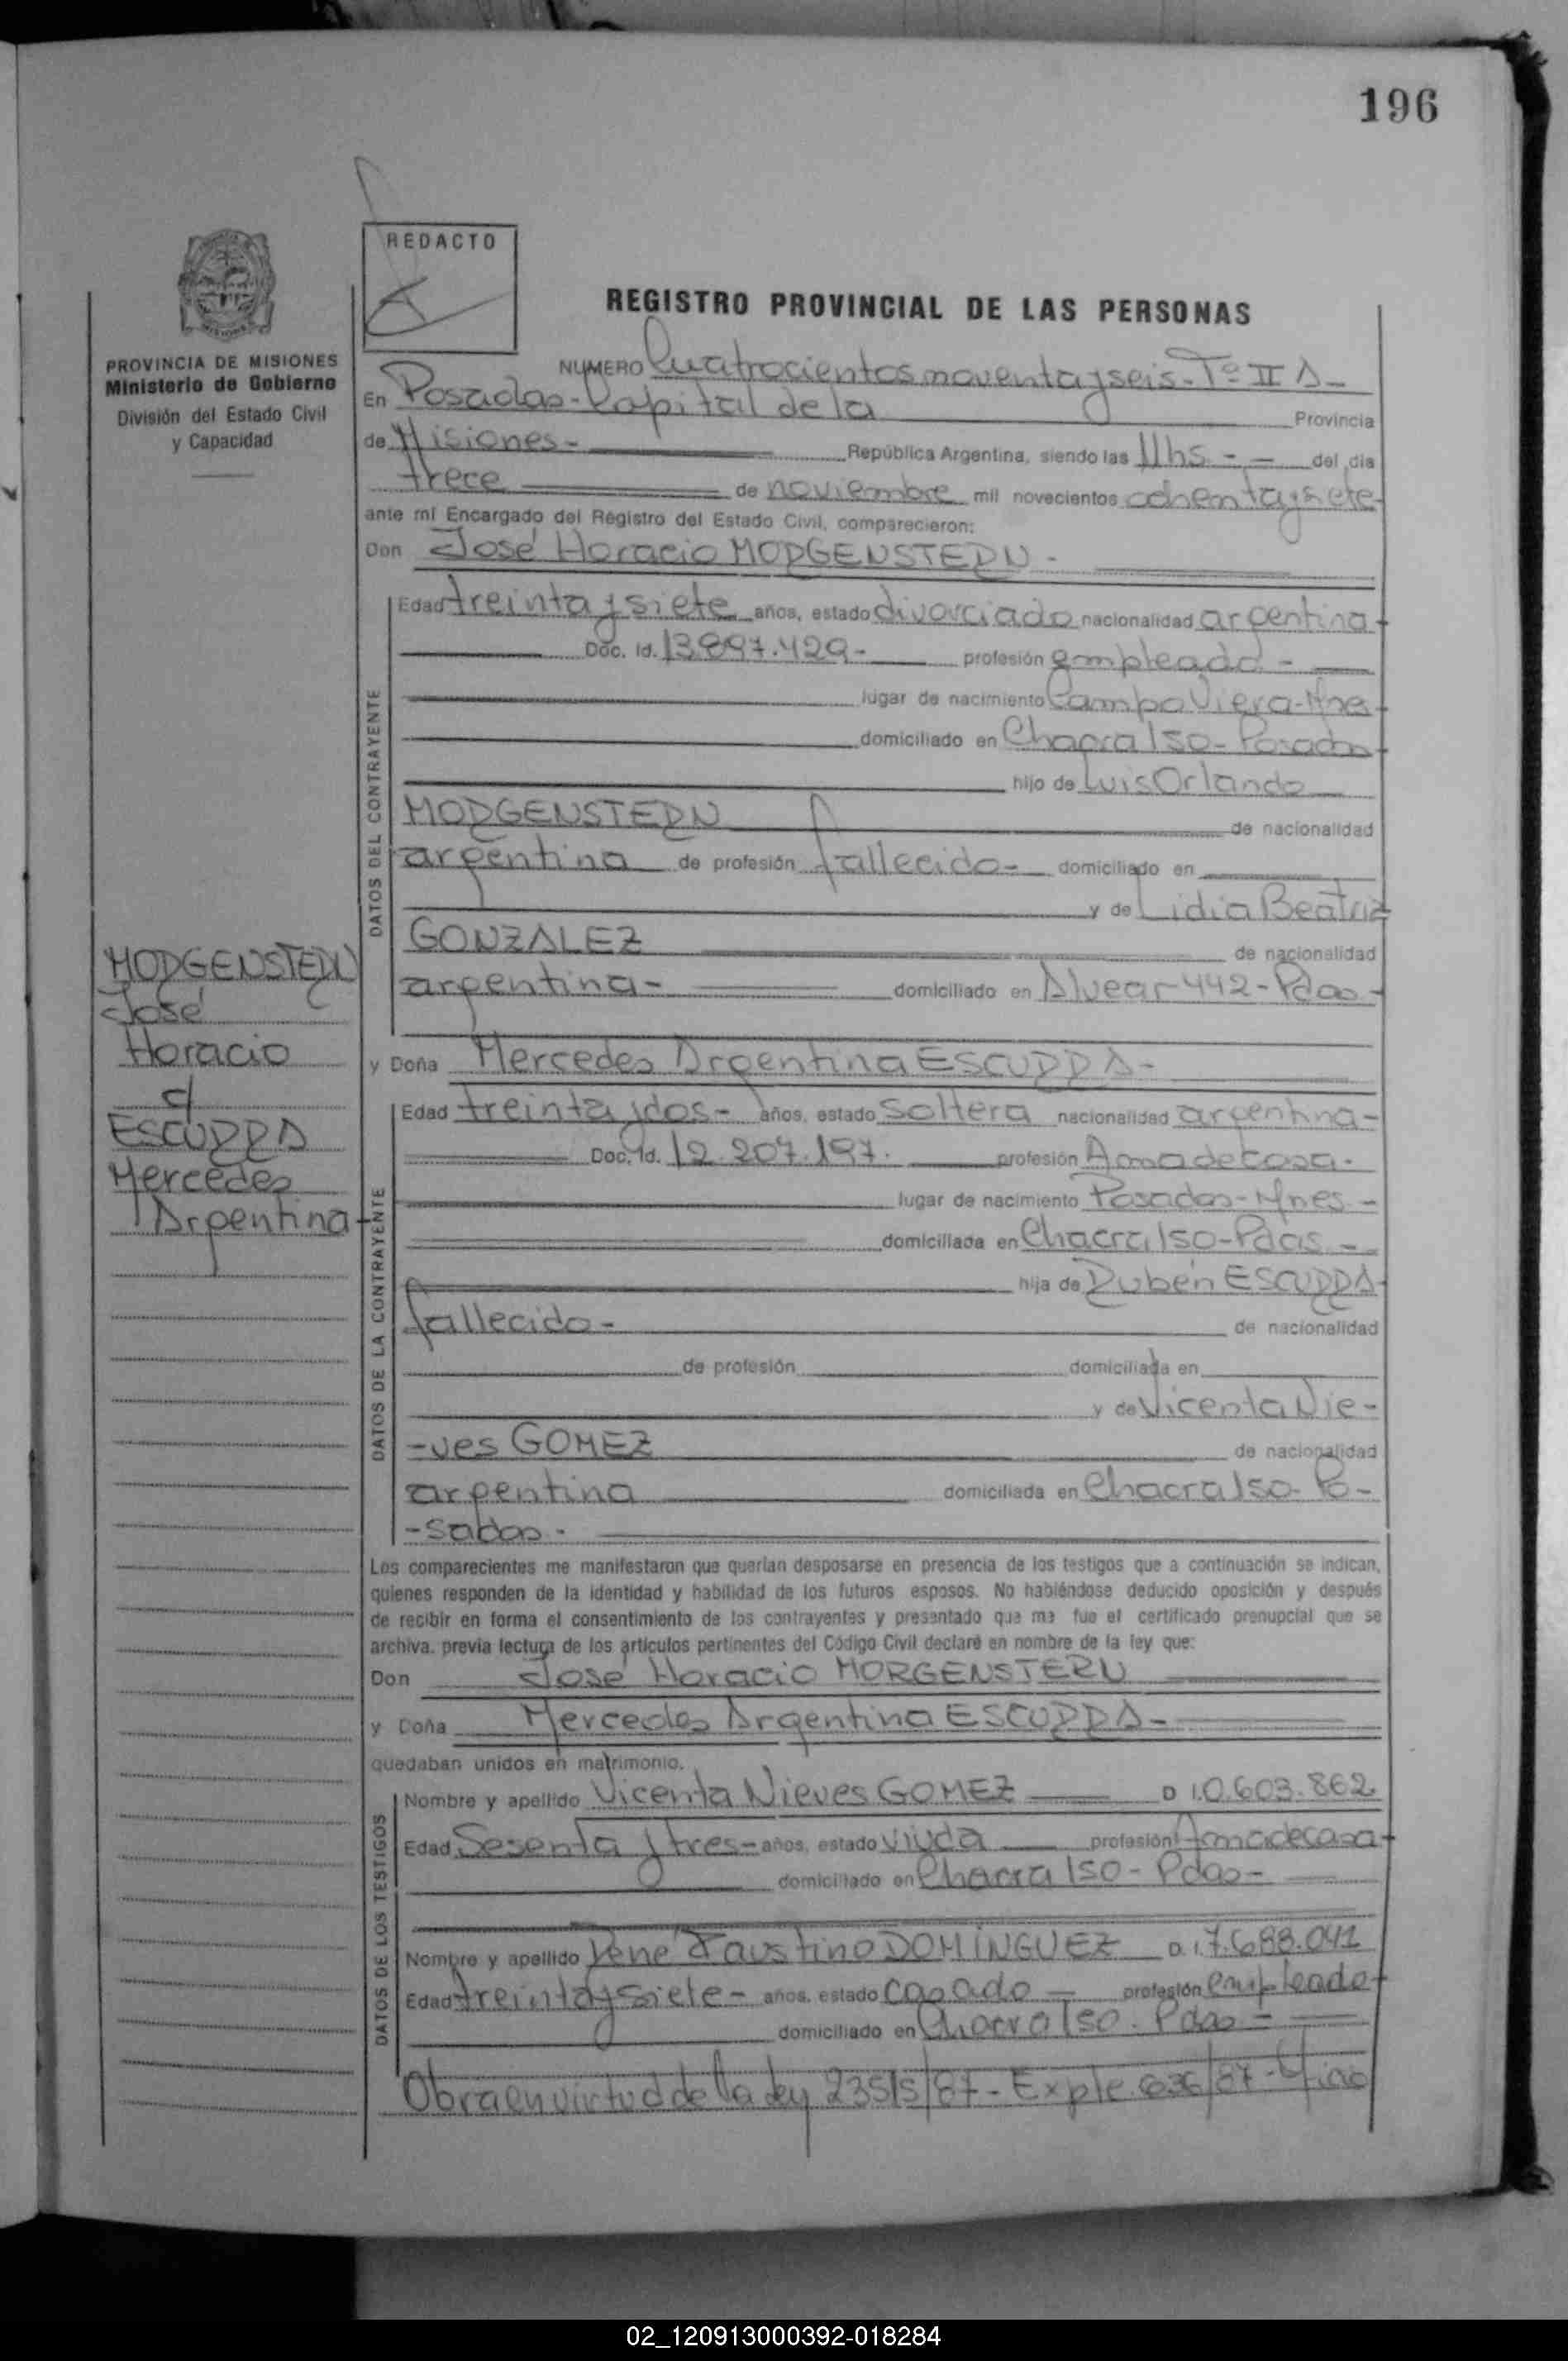 196
REDACTO
REGISTRO PROVINCIAL DE LAS PERSONAS
PROVINCIA DE MISIONES
Ministerio de Gobierno
División del Estado Civil
y Capacidad
NUMERO Cuatrocientos noventa y seis - Tº II A -
En Posadas - Capital de la Provincia
de Misiones - República Argentina, siendo las 11hs - - del dia
trece de noviembre mil novecientos ochenta y siete
ante mí Encargado del Registro del Estado Civil, comparecieron:
Don José Horacio MORGENSTERN -
DATOS DEL CONTRAYENTE
Edad treinta y siete años, estado divorciado nacionalidad argentina
Doc. Id. 13.897.429 - profesión empleado -
lugar de nacimiento Campo Viera - Mnes
domiciliado en Chacra 150 - Posadas
hijo de Luis Orlando
MORGENSTERN de nacionalidad
argentina de profesión fallecido - domiciliado en
y de Lidia Beatriz
GONZALEZ de nacionalidad
argentina - domiciliado en Alvear 442 - Pdas -
MORGENSTERN
José
Horacio
ESCURRA
Mercedes
Argentina
y Doña Mercedes Argentina ESCURRA -
DATOS DE LA CONTRAYENTE
Edad treinta y dos - años, estado soltera nacionalidad argentina -
Doc. Id. 12.207.197. profesión Ama de casa -
lugar de nacimiento Posadas - Mnes -
domiciliada en Chacra 150 - Pdas -
hija de Rubén ESCURRA
fallecido - de nacionalidad
de profesión domiciliada en
y de Vicenta Nie-
-ves GOMEZ de nacionalidad
argentina domiciliada en Chacra 150 - Po-
-sadas -
Los comparecientes me manifestaron que querían desposarse en presencia de los testigos que a continuación se indican,
quienes responden de la identidad y habilidad de los futuros esposos. No habiéndose deducido oposición y después
de recibir en forma el consentimiento de los contrayentes y presentado que me fue el certificado prenupcial que se
archiva. previa lectura de los artículos pertinentes del Código Civil declaré en nombre de la ley que:
Don José Horacio MORGENSTERN
y Doña Mercedes Argentina ESCURRA -
quedaban unidos en matrimonio.
DATOS DE LOS TESTIGOS
Nombre y apellido Vicenta Nieves GOMEZ D 10.603.862
Edad Sesenta y tres - años, estado viuda profesión Ama de casa
domiciliado en Chacra 150 - Pdas -
Nombre y apellido René Faustino DOMINGUEZ D.I. 7.688.041
Edad treinta y siete - años, estado casado profesión empleado
domiciliado en Chacra 150 - Pdas -
Obra en virtud de la Ley 23515/87 - Expte. 636/87 -
02_120913000392-018284